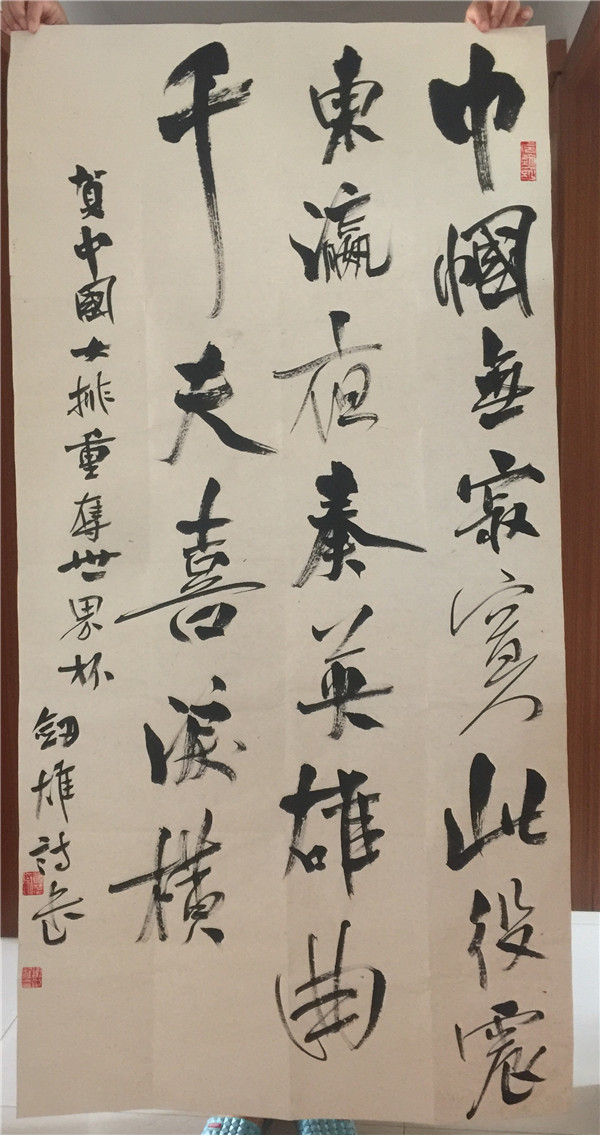 巾幗無寂寞此役震
東瀛夜奏英雄曲
千夫喜淚橫
賀中國女排重奪世界杯
劍雄詩